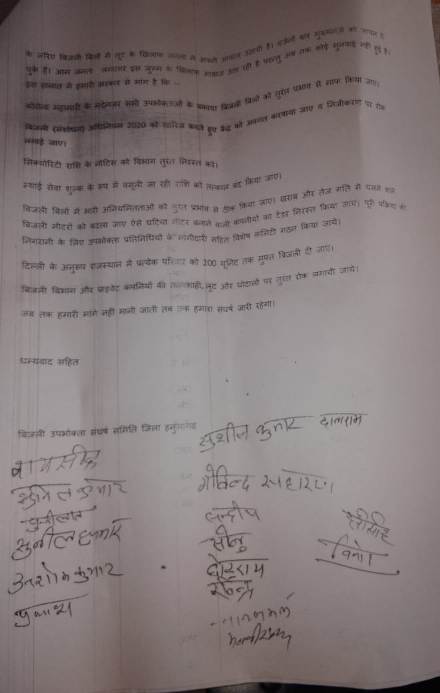 के जरिए बिजली बिलों में लूट के खिलाफ जनता ने अपनी आवाज उठायी है। दर्जनों बार मुख्यमंत्री को ज्ञापन दे
चुके हैं। आम जनता लगातार इस जुल्म के खिलाफ आवाज उठा रही है परन्तु अब तक कोई सुनवाई नहीं हुई है।
इस हालात में हमारी सरकार से मांग है कि —
कोरोना महामारी के मद्देनजर सभी उपभोक्ताओं के बकाया बिजली बिलों को तुरंत प्रभाव से माफ किया जाए।
बिजली (संशोधन) अधिनियम 2020 को खारिज करते हुए केंद्र को अवगत करवाया जाए व निजीकरण पर रोक
लगाई जाए।
सिक्योरिटी राशि के नोटिस को विभाग तुरंत निरस्त करे।
स्थाई सेवा शुल्क के रूप में वसूली जा रही राशि को तत्काल बंद किया जाए।
बिजली बिलों में भारी अनियमितताओं को तुरंत प्रभाव से ठीक किया जाए। खराब और तेज गति से चलने वाले
बिजली मीटरों को बदला जाए ऐसे घटिया मीटर बनाने वाली कंपनीयों का टेंडर निरस्त किया जाए। पूरी प्रक्रिया की
निगरानी के लिए उपभोक्ता प्रतिनिधियों के भागीदारी सहित विशेष समिटी गठन किया जाये।
दिल्ली के अनुरूप राजस्थान में प्रत्येक परिवार को 200 यूनिट तक मुफ्त बिजली दी जाए।
बिजली विभाग और प्राइवेट कंपनियों की तानाशाही, लूट और घोटालों पर तुरंत रोक लगायी जाये।
जब तक हमारी मांगे नहीं मानी जाती तब तक हमारा संघर्ष जारी रहेगा।
धन्यवाद सहित
बिजली उपभोक्ता संघर्ष समिति जिला हनुमानगढ़
सुशील कुमार
गोविन्द सहारण
सुनील कुमार
सोनु
विनोद